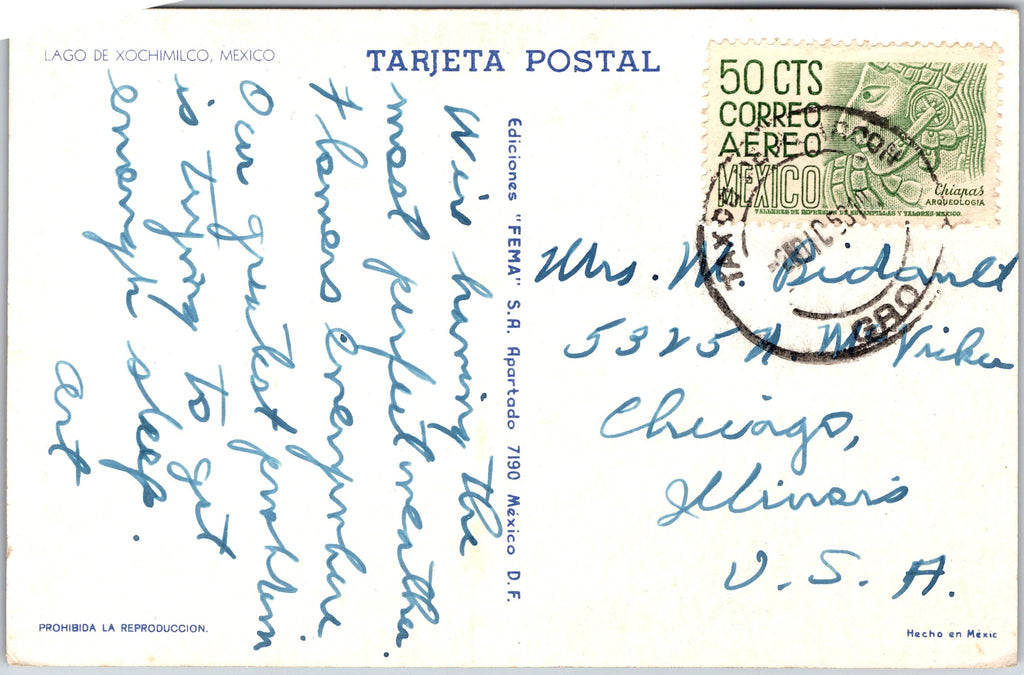 LAGO DE XOCHIMILCO, MEXICO
TARJETA POSTAL
50 CTS
CORREO
AEREO
MEXICO
Chiapas
ARQUEOLOGIA
TALLERES DE IMPRESION DE ESTAMPILLAS Y VALORES-MEXICO.
TAXCO DE ALARCON
GRO
We're having the
most perfect weather
& flowers everywhere
Our greatest problem
is trying to get
enough sleep.
Art
Ediciones "FEMA" S.A. Apartado 7190 México D.F.
Mrs. M. Bidault
5325 N. McVicker
Chicago,
Illinois
U.S.A.
PROHIBIDA LA REPRODUCCION.
Hecho en Méxic